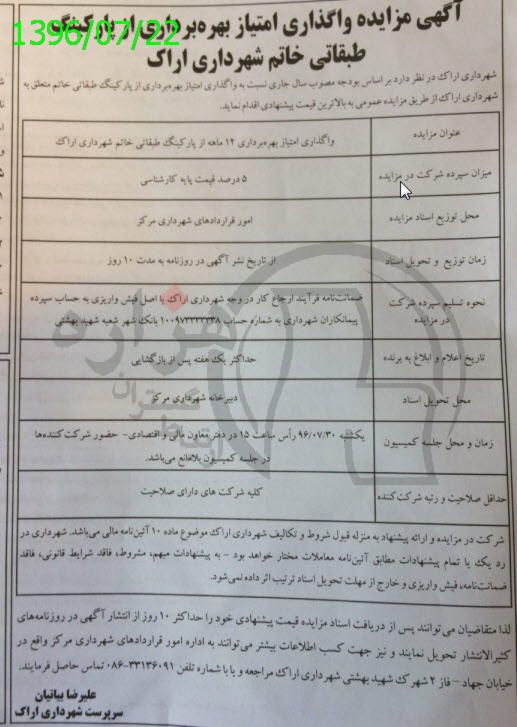 آگهی مزایده واگذاری امتیاز بهره‌برداری از پارکینگ
1396/07/22
طبقاتی خاتم شهرداری اراک
شهرداری اراک در نظر دارد بر اساس بودجه مصوب سال جاری نسبت به واگذاری امتیاز بهره‌برداری از پارکینگ طبقاتی خاتم متعلق به
شهرداری اراک از طریق مزایده عمومی به بالاترین قیمت پیشنهادی اقدام نماید.
عنوان مزایده
واگذاری امتیاز بهره‌برداری ۱۲ ماهه از پارکینگ طبقاتی خاتم شهرداری اراک
میزان سپرده شرکت در مزایده
۵ درصد قیمت پایه کارشناسی
محل توزیع اسناد مزایده
امور قراردادهای شهرداری مرکز
زمان توزیع و تحویل اسناد
از تاریخ نشر آگهی در روزنامه به مدت ۱۰ روز
نحوه تسلیم سپرده شرکت
در مزایده
ضمانت‌نامه فرآیند ارجاع کار در وجه شهرداری اراک یا اصل فیش واریزی به حساب سپرده
پیمانکاران شهرداری به شماره حساب ۱۰۰۹۷۳۳۳۳۳۸ بانک شهر شعبه شهید بهشتی
تاریخ اعلام و ابلاغ به برنده
حداکثر یک هفته پس از بازگشایی
محل تحویل اسناد
دبیرخانه شهرداری مرکز
زمان و محل جلسه کمیسیون
یکشنبه ۹۶/۰۷/۳۰ رأس ساعت ۱۵ در دفتر معاون مالی و اقتصادی- حضور شرکت‌کننده‌ها
در جلسه کمیسیون بلامانع می‌باشد.
حداقل صلاحیت و رتبه شرکت‌کننده
کلیه شرکت های دارای صلاحیت
شرکت در مزایده و ارائه پیشنهاد به منزله قبول شروط و تکالیف شهرداری اراک موضوع ماده ۱۰ آئین‌نامه مالی می‌باشد. شهرداری در
رد یک یا تمام پیشنهادات مطابق آئین‌نامه معاملات مختار خواهد بود - به پیشنهادات مبهم، مشروط، فاقد شرایط قانونی، فاقد
ضمانت‌نامه، فیش واریزی و خارج از مهلت تحویل اسناد ترتیب اثر داده نمی‌شود.
لذا متقاضیان می‌توانند پس از دریافت اسناد مزایده قیمت پیشنهادی خود را حداکثر ۱۰ روز از انتشار آگهی در روزنامه‌های
کثیرالانتشار تحویل نمایند و نیز جهت کسب اطلاعات بیشتر می‌توانند به اداره امور قراردادهای شهرداری مرکز واقع در
خیابان جهاد – فاز ۲ شهرک شهید بهشتی شهرداری اراک مراجعه و یا با شماره تلفن ۳۳۱۳۶۰۹۱-۰۸۶ تماس حاصل فرمایند.
علیرضا بیاتیان
سرپرست شهرداری اراک
هزاره
گستران